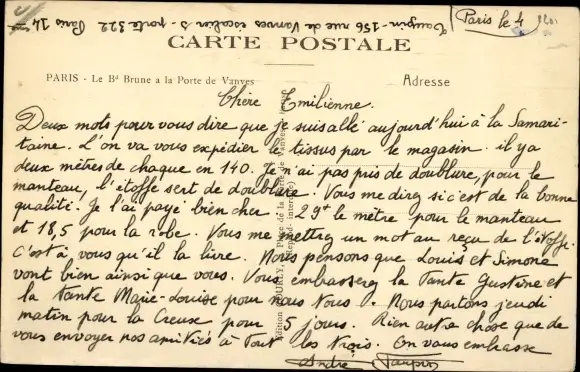 Taupin - 156 rue de Vanves escalier 3 - porte 322 Paris 14
Paris le 4
CARTE POSTALE
PARIS - Le Bd Brune a la Porte de Vanves
Adresse
Chère Emilienne.
Deux mots pour vous dire que je suis allé aujourd'hui à la Samari-
taine. L'on va vous expédier le tissus par le magasin. il y a
deux mètres de chaque en 140. Je n'ai pas pris de doublure, pour le
manteau, l'étoffe sert de doublure. Vous me direz si c'est de la bonne
qualité. Je l'ai payé bien cher 29f le mètre pour le manteau
et 18,5 pour la robe. Vous me mettrez un mot au reçu de l'étoffe.
C'est à vous qu'il la livre. Nous pensons que Louis et Simone
vont bien ainsi que vous. Vous embrasserez la Tante Gustine et
la tante Marie-Louise pour nous tous. Nous partons jeudi
matin pour la Creuse pour 5 jours. Rien autre chose que de
vous envoyer nos amitiés à tout les trois. On vous embrasse
André Taupin